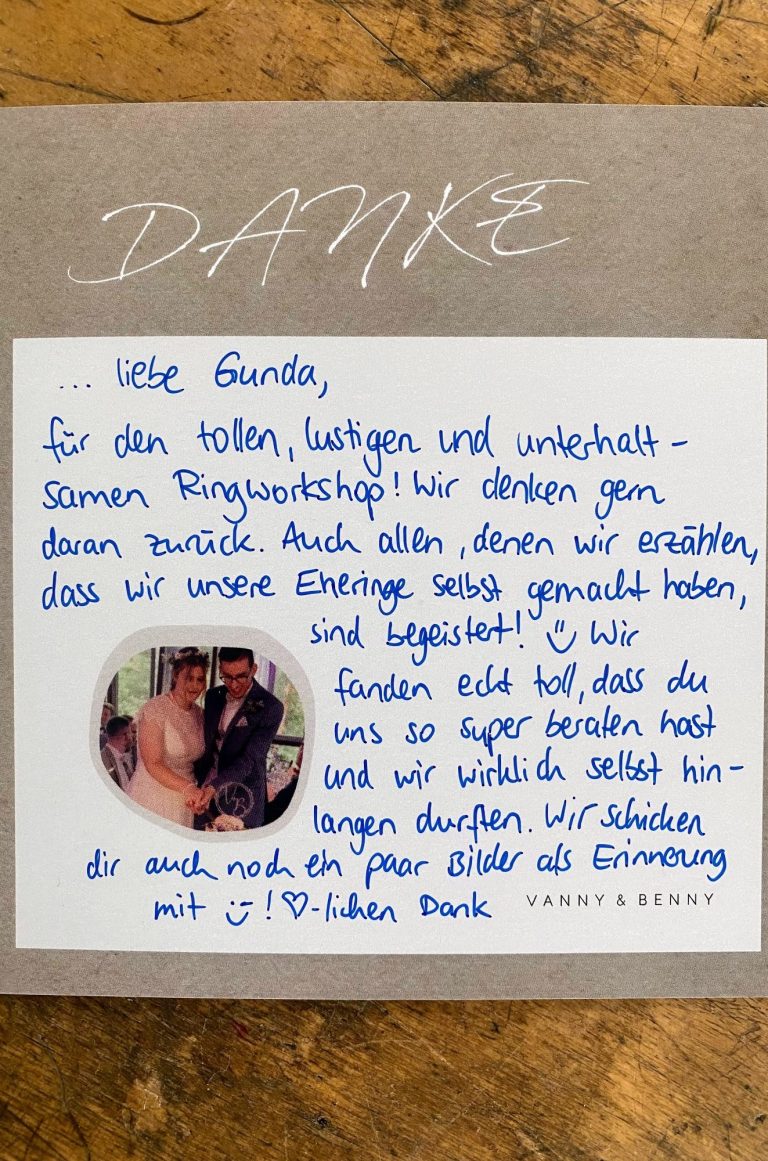 DANKE
... liebe Gunda,
für den tollen, lustigen und unterhalt-
samen Ringworkshop! Wir denken gern
daran zurück. Auch allen, denen wir erzählen,
dass wir unsere Eheringe selbst gemacht haben,
sind begeistert! ü Wir
fanden echt toll, dass du
uns so super beraten hast
und wir wirklich selbst hin-
langen durften. Wir schicken
dir auch noch ein paar Bilder als Erinnerung
mit :-)! ♡-lichen Dank
VANNY & BENNY
V B